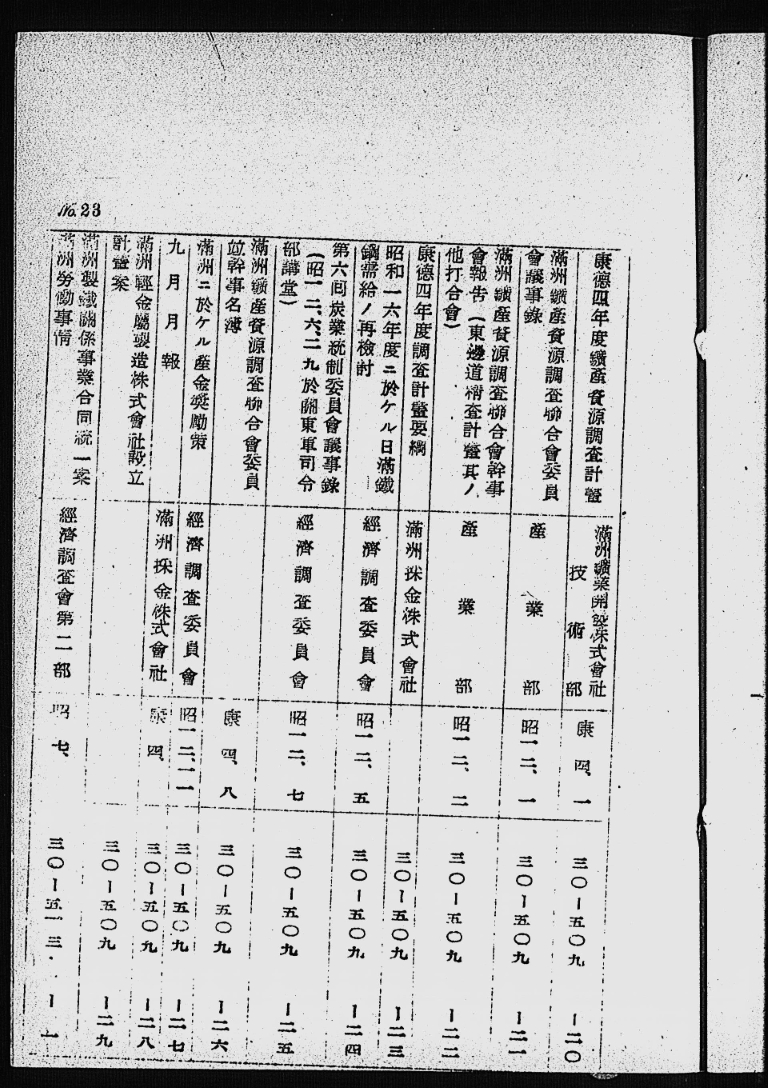 No. 23
康德四年度鑛產資源調査計畫
滿洲鑛業開發株式會社
技術部
康四、一
三〇−五〇九
−二〇
滿洲鑛產資源調査聯合會委員
會議事錄
產業部
昭一二、一
三〇−五〇九
−二一
滿洲鑛產資源調査聯合會幹事
會報告(東邊道精査計畫其ノ
他打合會)
產業部
昭一二、二
三〇−五〇九
−二二
康德四年度調査計畫要綱
滿洲採金株式會社
三〇−五〇九
−二三
昭和一六年度ニ於ケル日滿鐵
鋼需給ノ再檢討
經濟調査委員會
昭一二、五
三〇−五〇九
−二四
第六回炭業統制委員會議事錄
(昭一二、六、二九於關東軍司令
部講堂)
經濟調査委員會
昭一二、七
三〇−五〇九
−二五
滿洲鑛產資源調査聯合會委員
竝幹事名簿
康四、八
三〇−五〇九
−二六
滿洲ニ於ケル產金奬勵策
經濟調査委員會
昭一二、一一
三〇−五〇九
−二七
九月月報
滿洲採金株式會社
康四、
三〇−五〇九
−二八
滿洲輕金屬製造株式會社設立
計畫案
三〇−五〇九
−二九
滿洲製鐵關係事業合同統一案
滿洲勞働事情
經濟調査會第二部
昭七、
三〇−五一三
−一